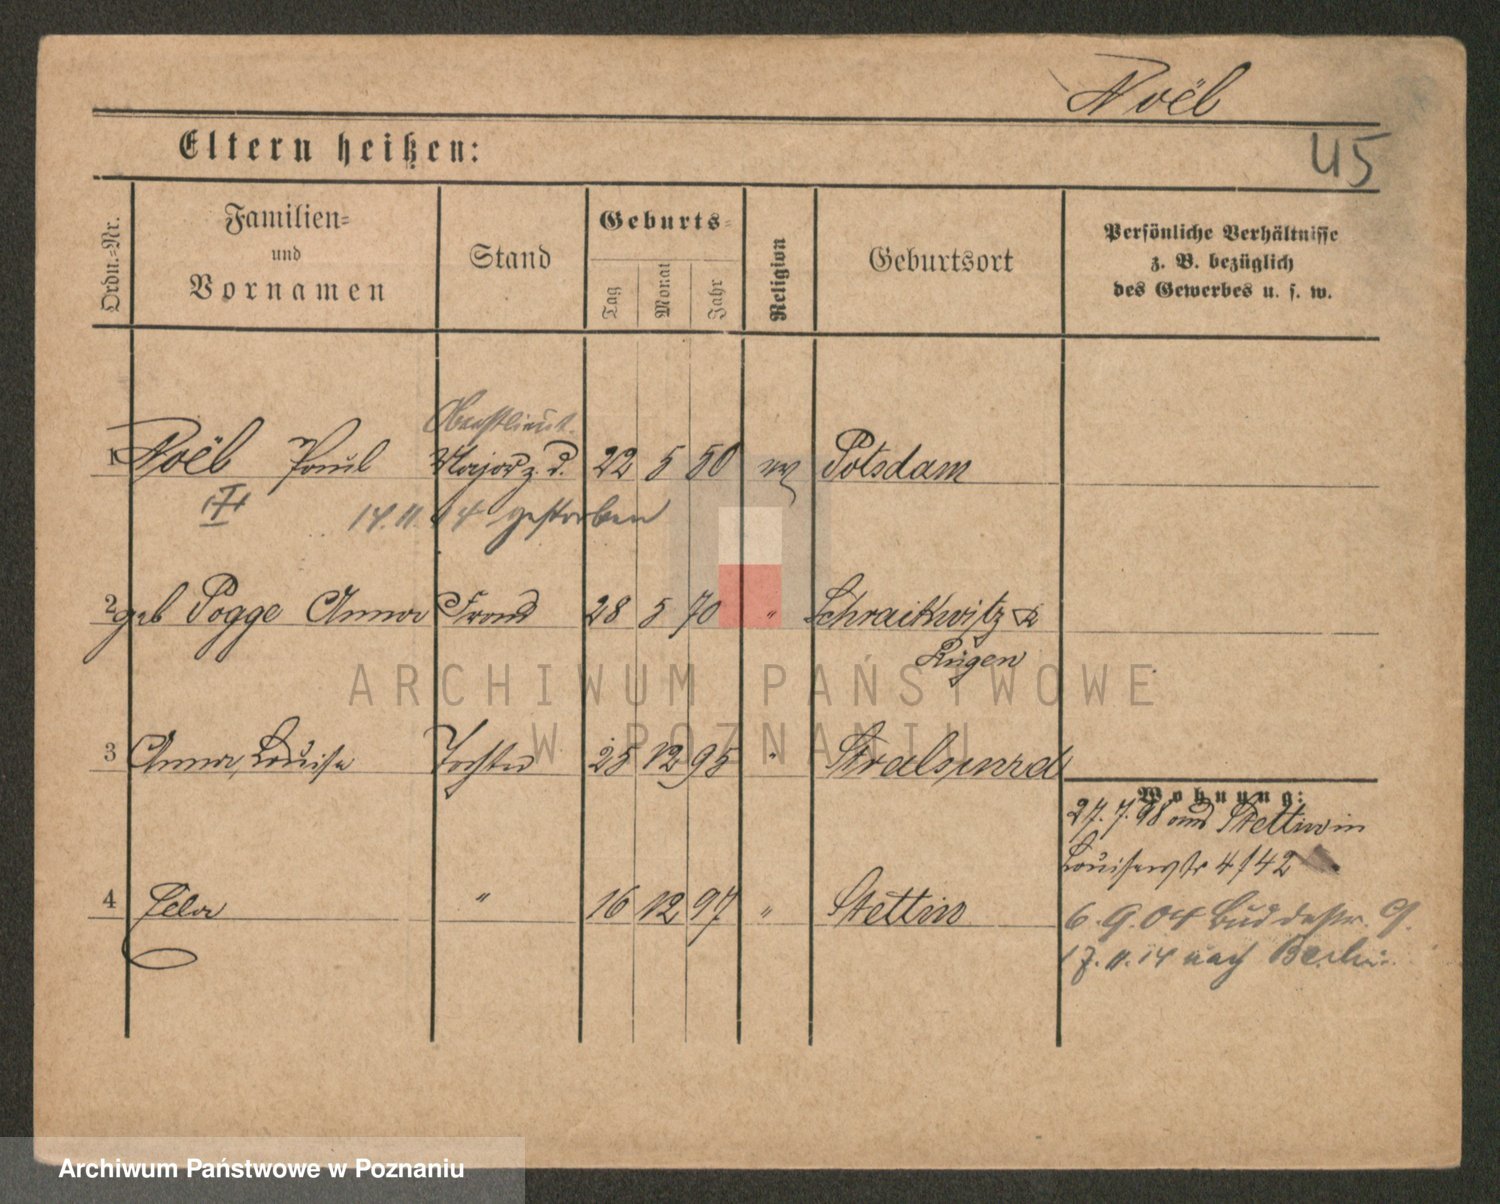 Noël
45
Eltern heißen:
Ordn.=Nr.
Familien=
und
Vornamen
Stand
Geburts=
Tag
Monat
Jahr
Religion
Geburtsort
Persönliche Verhältnisse
z. B. bezüglich
des Gewerbes u. s. w.
Oberstlieut.
1 Noël Paul Major z. D. 22 5 50 ev Potsdam
14. 11. 14 gestorben
2 geb Pogge Anna Frau 28 5 70 " 
Rügen
ARCHIWUM PAŃSTWOWE
W POZNANIU
3 Anna, Louise Tochter 25 12 95 " Stralsund
Wohnung:
27. 7. 98 aus Stettin in
Louisenstr 4/42
4 " 16 12 97 " Stettin
6. 9. 04 Buddestr. 9.
17. 11. 14 nach Berlin.
Archiwum Państwowe w Poznaniu